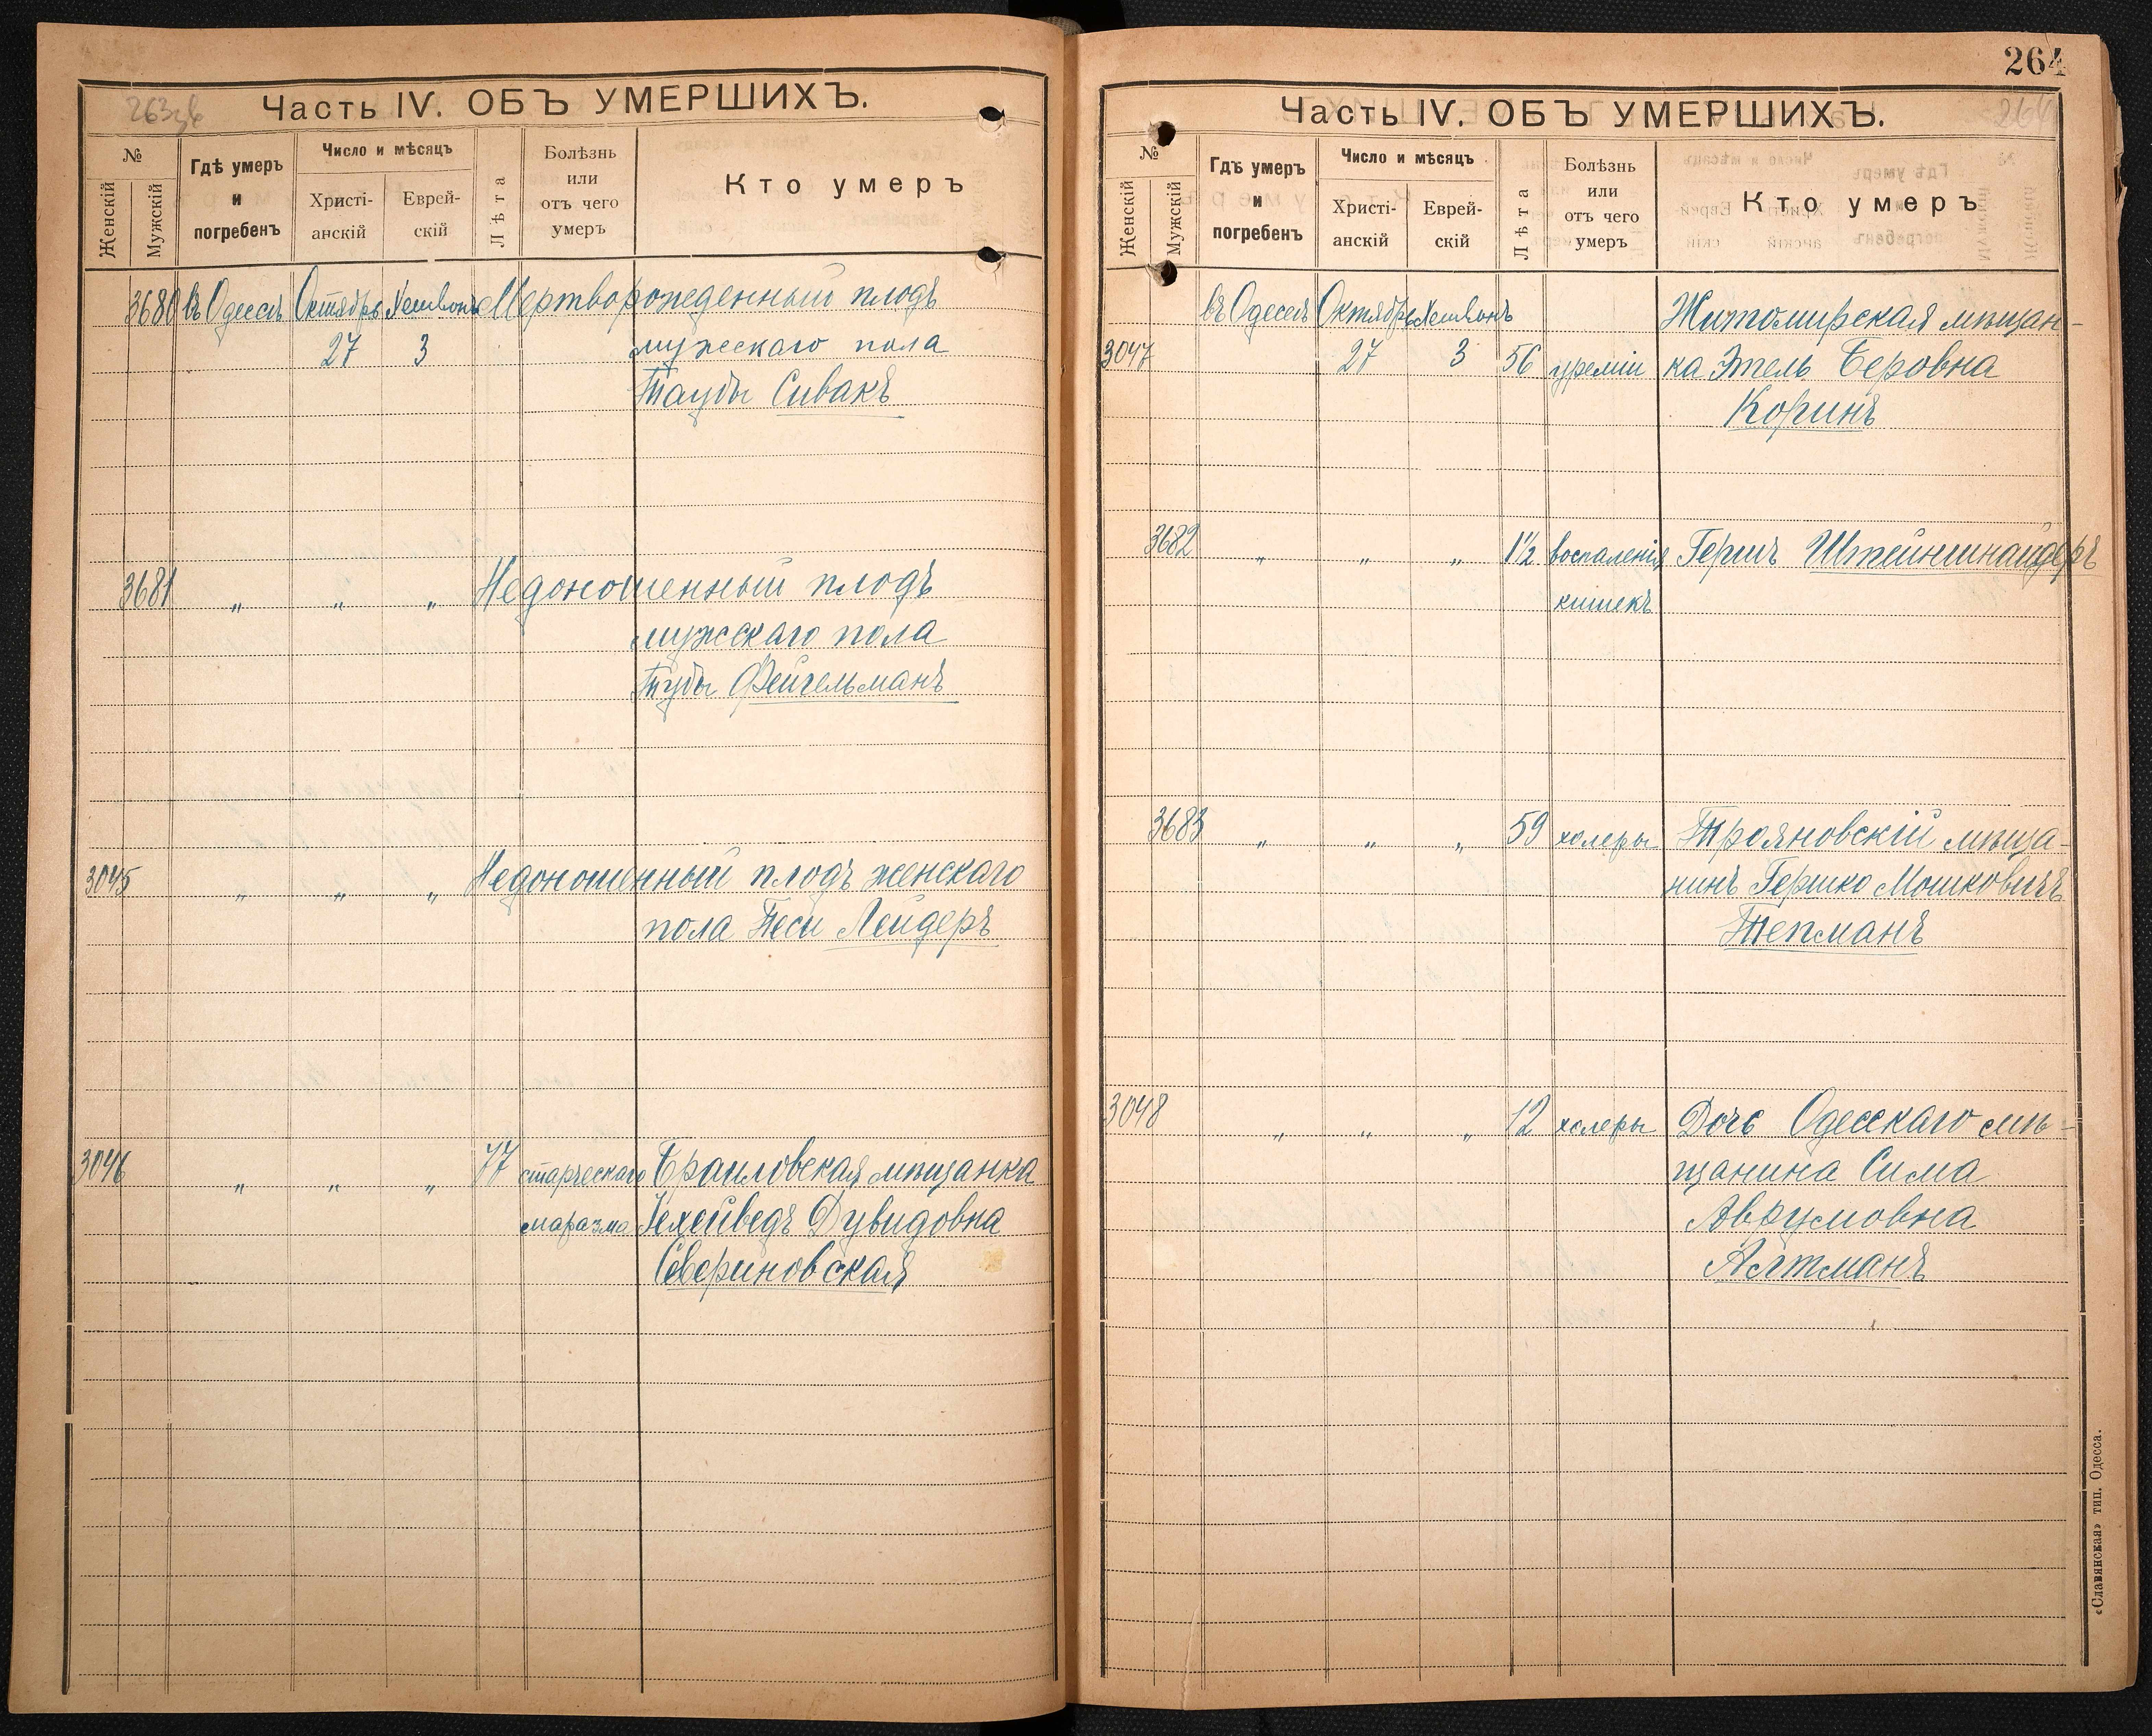 263 об
Часть IV. ОБЪ УМЕРШИХЪ.
№
Женскій
Мужскій
Гдѣ умеръ
и
погребенъ
Число и мѣсяцъ
Христі-
анскій
Еврей-
скій
Лѣта
Болѣзнь
или
отъ чего
умеръ
Кто умеръ
3680 въ Одессѣ Октябрь Хешвонъ Мертворожденный плодъ
27 3 мужескаго пола
Таубы Сивакъ
3681 „ „ „ Недоношенный плодъ
мужскаго пола
Тубы Фейгельманъ
3045 „ „ „ Недоношенный плодъ женскаго
пола Песи Лейдеръ
3046 „ „ „ 77 старческаго Браиловская мѣщанка
маразма Іехейведъ Дувидовна
Севериновская
264
Часть IV. ОБЪ УМЕРШИХЪ.
264
№
Женскій
Мужскій
Гдѣ умеръ
и
погребенъ
Число и мѣсяцъ
Христі-
анскій
Еврей-
скій
Лѣта
Болѣзнь
или
отъ чего
умеръ
Кто умеръ
въ Одессѣ Октябрь Хешвонъ Житомирская мѣщан-
3047 27 3 56 уреміи ка Этель Беровна
Коринъ
3682 „ „ „ 1½ воспаленія Гершъ Штейншнайдеръ
кишекъ
3683 „ „ „ 59 холеры Трояновскій мѣща-
нинъ Гершко Мошковичъ
Тепманъ
3048 „ „ „ 12 холеры Дочь Одесскаго мѣ-
щанина Сима
Аврумовна
Алтманъ
«Славянская» тип. Одесса.